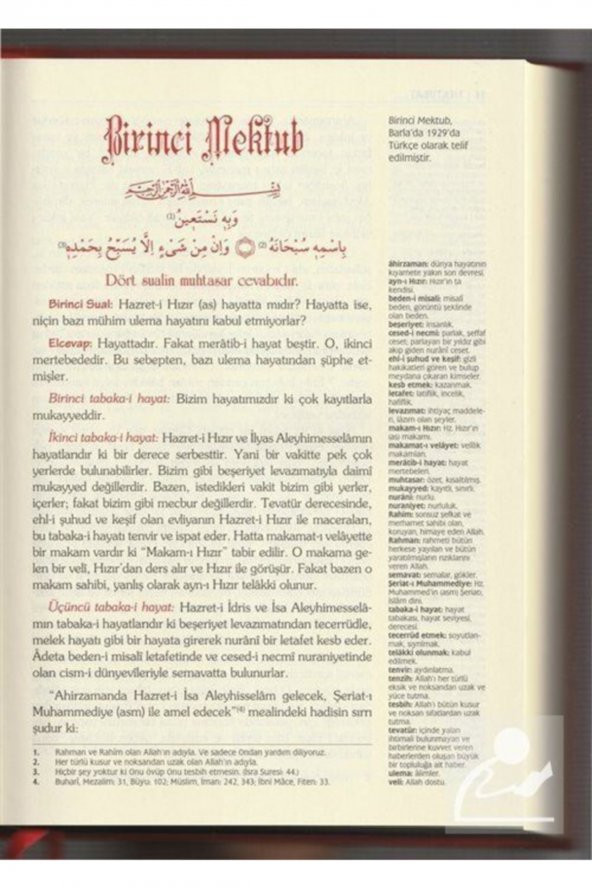 Birinci Mektub
بِسْمِ اللّٰهِ الرَّحْمٰنِ الرَّحِيمِ
وَبِهِ نَسْتَعِينُ (1)
بِاسْمِهِ سُبْحَانَهُ (2) وَاِنْ مِنْ شَىْءٍ اِلَّا يُسَبِّحُ بِحَمْدِهِ (3)
Dört sualin muhtasar cevabıdır.
Birinci Sual: Hazret-i Hızır (as) hayatta mıdır? Hayatta ise,
niçin bazı mühim ulema hayatını kabul etmiyorlar?
Elcevap: Hayattadır. Fakat merâtib-i hayat beştir. O, ikinci
mertebededir. Bu sebepten, bazı ulema hayatından şüphe et-
mişler.
Birinci tabaka-i hayat: Bizim hayatımızdır ki çok kayıtlarla
mukayyeddir.
İkinci tabaka-i hayat: Hazret-i Hızır ve İlyas Aleyhimesselâmın
hayatlarıdır ki bir derece serbesttir. Yani bir vakitte pek çok
yerlerde bulunabilirler. Bizim gibi beşeriyet levazımatıyla daimî
mukayyed değillerdir. Bazen, istedikleri vakit bizim gibi yerler,
içerler; fakat bizim gibi mecbur değillerdir. Tevatür derecesinde,
ehl-i şuhud ve keşif olan evliyanın Hazret-i Hızır ile maceraları,
bu tabaka-i hayatı tenvir ve ispat eder. Hatta makamat-ı velâyette
bir makam vardır ki "Makam-ı Hızır" tabir edilir. O makama ge-
len bir velî, Hızır'dan ders alır ve Hızır ile görüşür. Fakat bazen o
makam sahibi, yanlış olarak ayn-ı Hızır telâkki olunur.
Üçüncü tabaka-i hayat: Hazret-i İdris ve İsa Aleyhimesselâ-
mın tabaka-i hayatlarıdır ki beşeriyet levazımatından tecerrüdle,
melek hayatı gibi bir hayata girerek nuranî bir letafet kesb eder.
Âdeta beden-i misalî letafetinde ve cesed-i necmî nuraniyetinde
olan cism-i dünyevîleriyle semavatta bulunurlar.
"Ahirzamanda Hazret-i İsa Aleyhisselâm gelecek, Şeriat-ı
Muhammediye (asm) ile amel edecek"(4) mealindeki hadisin sırrı
şudur ki:
1. Rahman ve Rahîm olan Allah'ın adıyla. Ve sadece Ondan yardım diliyoruz.
2. Her türlü kusur ve noksandan uzak olan Allah'ın adıyla.
3. Hiçbir şey yoktur ki Onu övüp Onu tesbih etmesin. (İsra Suresi: 44.)
4. Buharî, Mezalim: 31, Büyu: 102; Müslim, İman: 242, 343; İbni Mâce, Fiten: 33.
Birinci Mektub,
Barla'da 1929'da
Türkçe olarak telif
edilmiştir.
âhirzaman: dünya hayatının
kıyamete yakın son devresi.
ayn-ı Hızır: Hızır'ın ta
kendisi.
beden-i misalî: misalî
beden, görüntü şeklinde
olan beden.
beşeriyet: insanlık.
cesed-i necmî: parlak, şeffaf
ceset; parlayan bir yıldız gibi
akıp giden nuranî ceset.
ehl-i şuhud ve keşif: gizli
hakikatleri gören ve bulup
meydana çıkaran kimseler.
kesb etmek: kazanmak.
letafet: latiflik, incelik,
hafiflik.
levazımat: ihtiyaç maddele-
ri, lâzım olan şeyler.
makam-ı Hızır: Hz. Hızır'ın
(as) makamı.
makamat-ı velâyet: velîlik
makamları.
merâtib-i hayat: hayat
mertebeleri.
muhtasar: özet, kısaltılmış.
mukayyed: kayıtlı, sınırlı.
nuranî: nurlu.
nuraniyet: nurluluk.
Rahîm: sonsuz şefkat ve
merhamet sahibi olan,
koruyan, himaye eden Allah.
Rahman: rahmeti bütün
herkese yayılan ve bütün
yaratılmışların rızıklarını
veren Allah.
semavat: semalar, gökler.
Şeriat-ı Muhammediye: Hz.
Muhammed'in (asm) Şeriatı,
İslâm dini.
tabaka-i hayat: hayat
tabakası, hayat seviyesi,
derecesi.
tecerrüd etmek: soyutlan-
mak, sıyrılmak.
telâkki olunmak: kabul
edilmek.
tenvir: aydınlatma.
tenzih: Allah'ı her türlü
eksik ve noksandan uzak ve
yüce tutma.
tesbih: Allah'ı bütün kusur
ve noksan sıfatlardan uzak
tutma.
tevatür: içinde yalan
ihtimali bulunmayan ve
birbirlerine kuvvet veren
haberlerden oluşan büyük
bir topluluğa ait haber.
ulema: âlimler.
velî: Allah dostu.